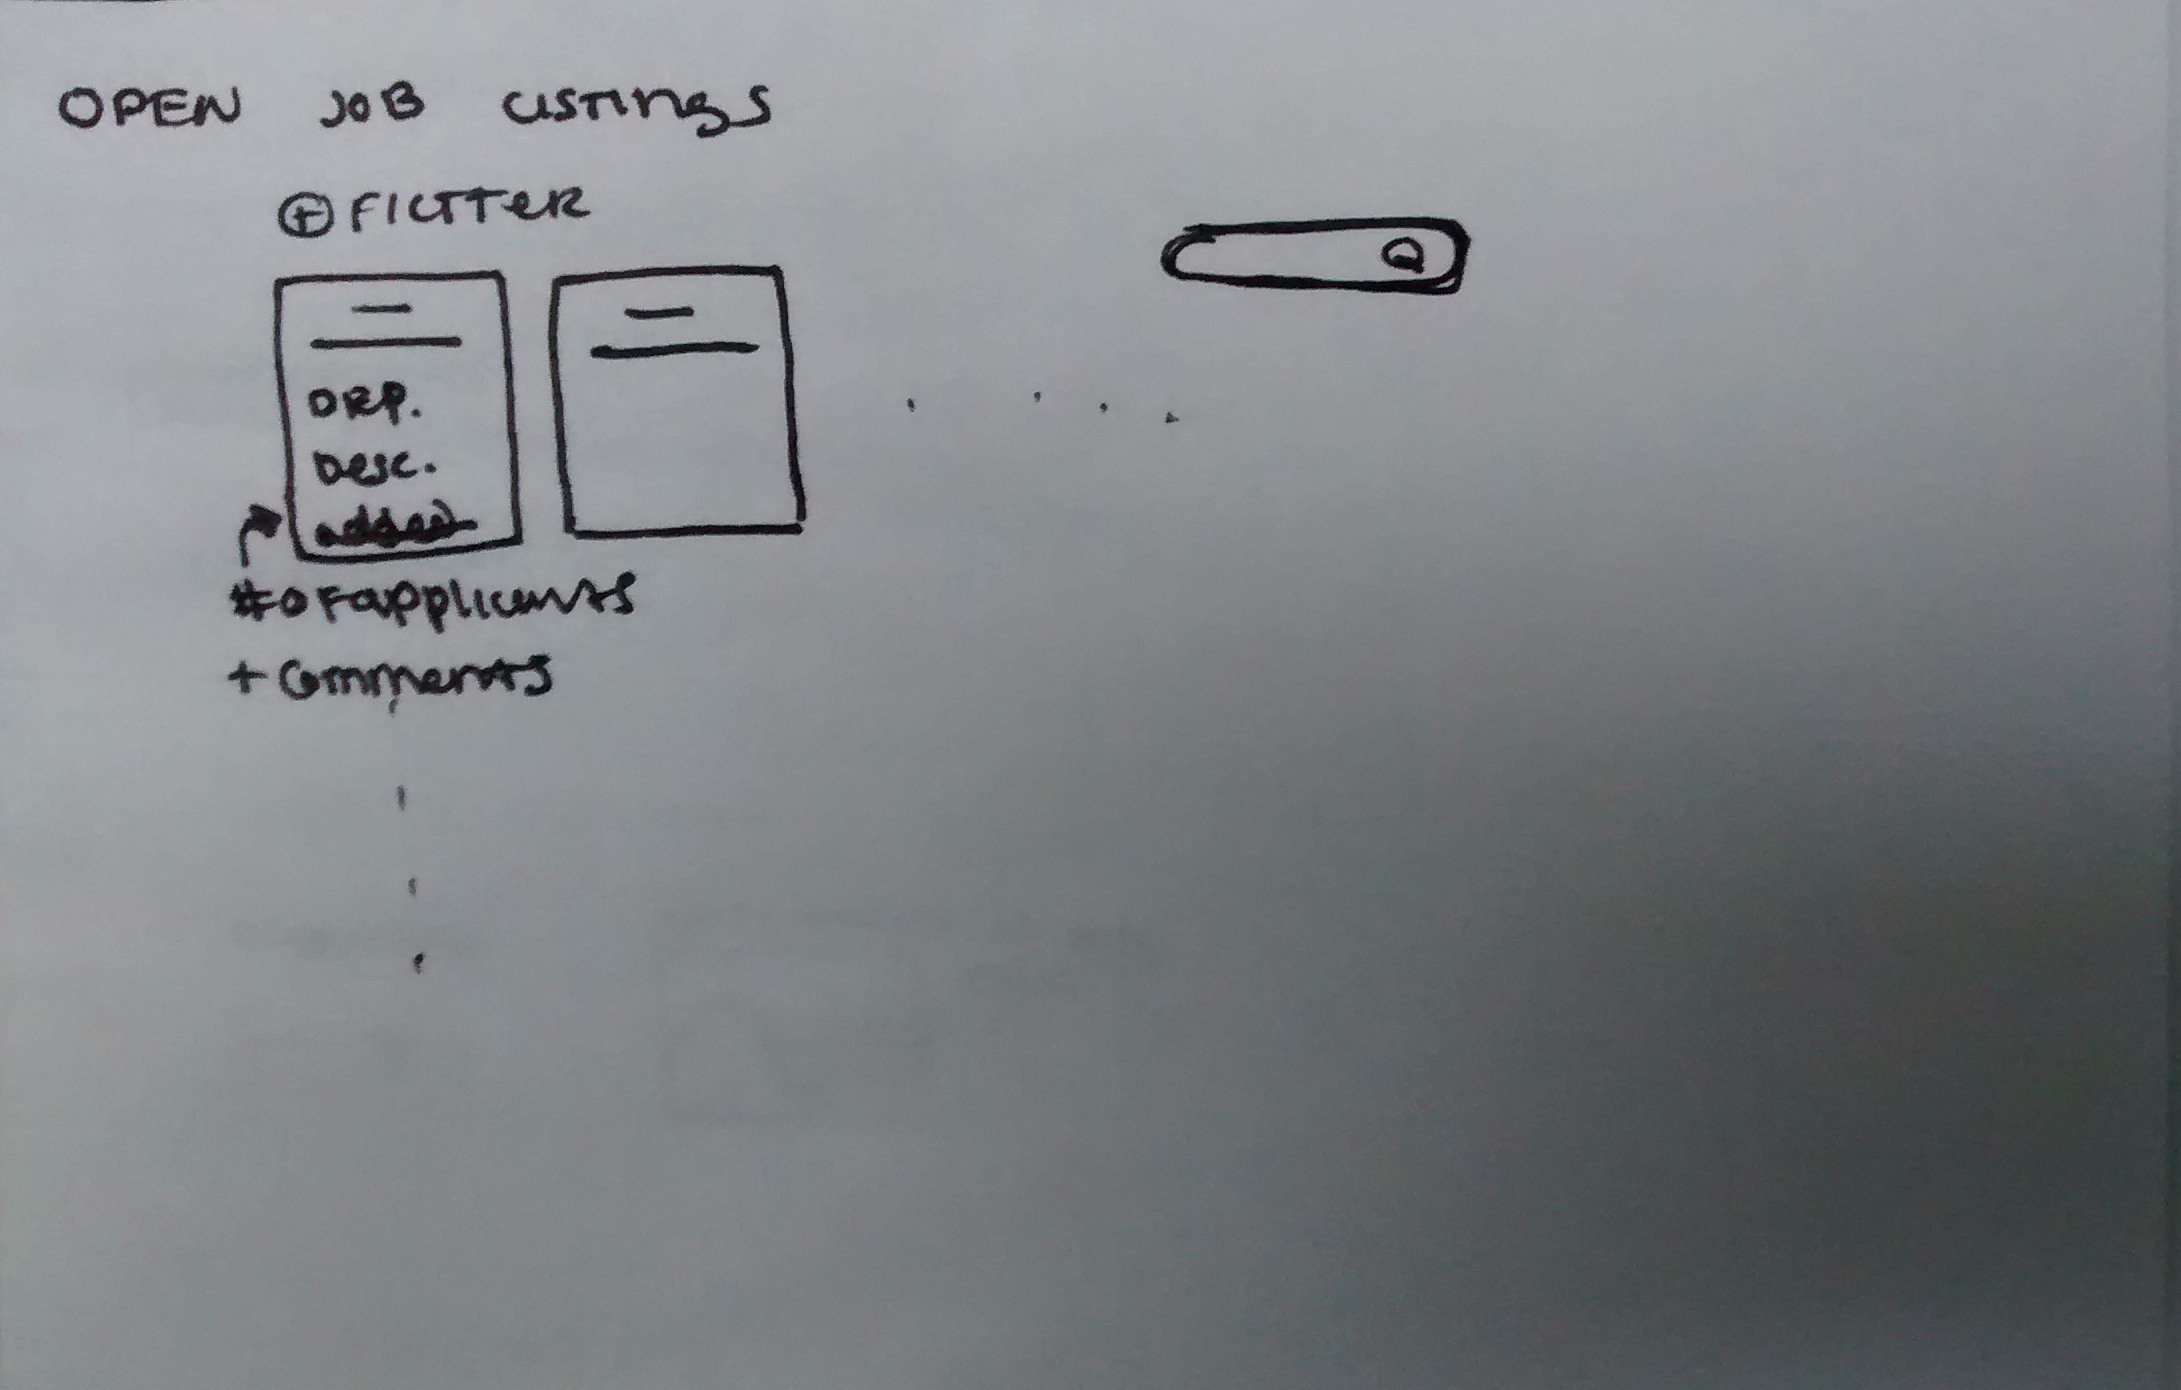 OPEN JOB LISTINGS
+ FILTTER
DRP.
Desc.
# OF applicants
+ Comments